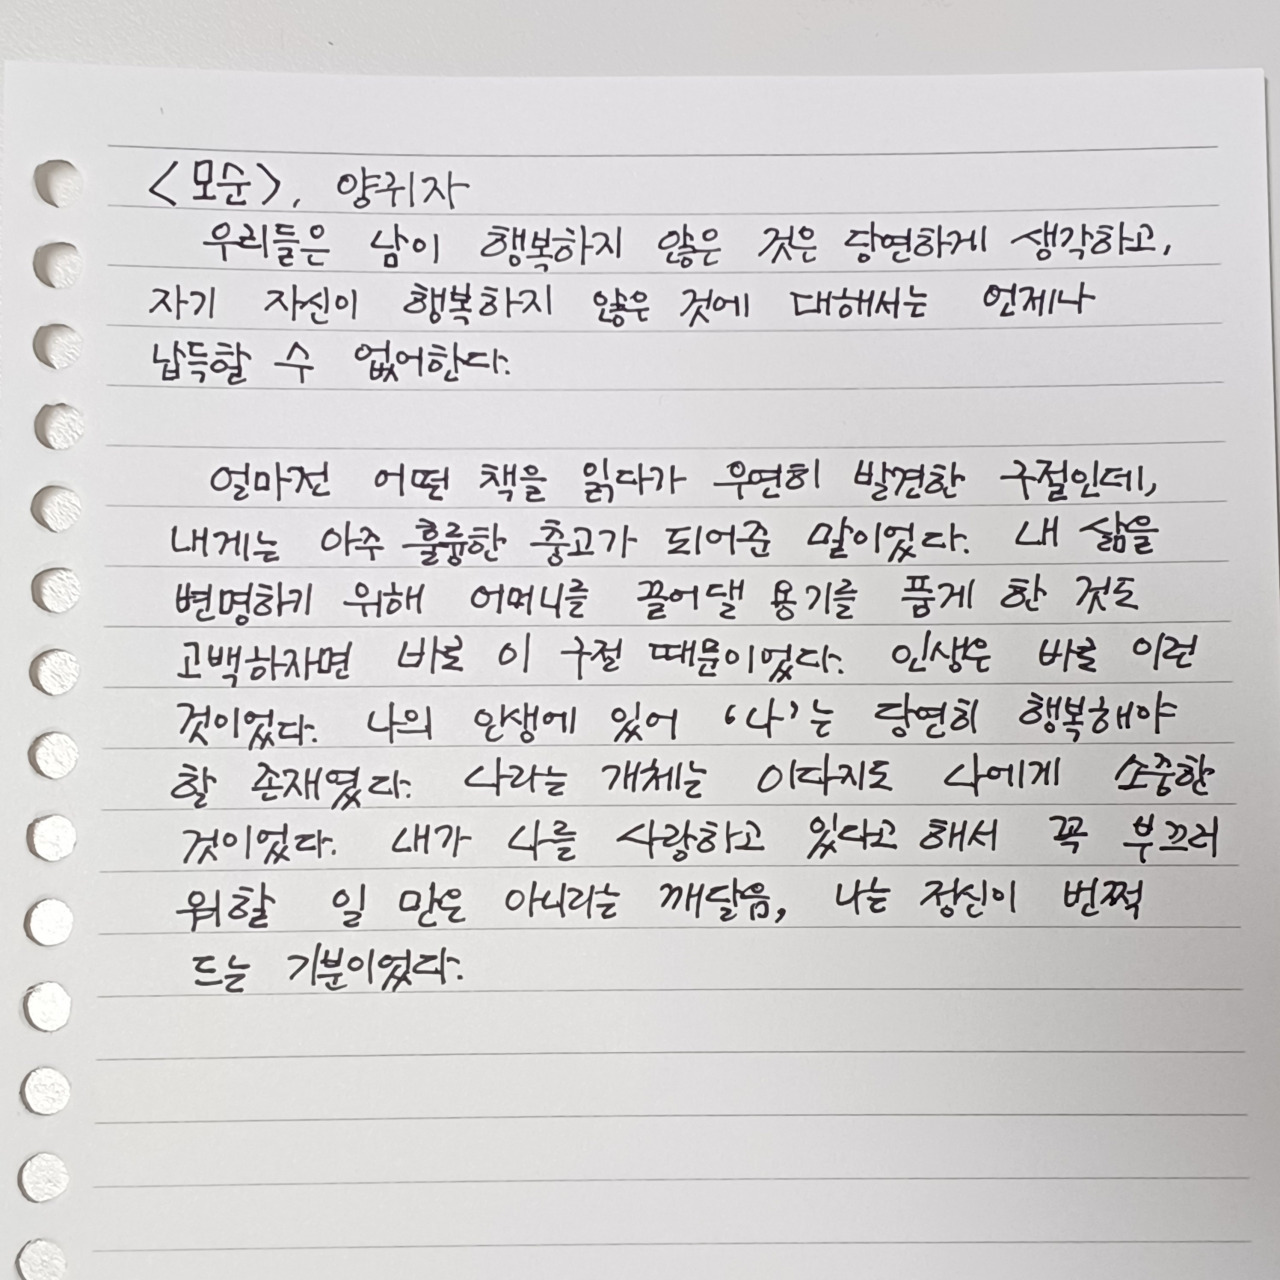 <모순>, 양귀자
우리들은 남이 행복하지 않은 것은 당연하게 생각하고,
자기 자신이 행복하지 않은 것에 대해서는 언제나
납득할 수 없어한다.
얼마전 어떤 책을 읽다가 우연히 발견한 구절인데,
내게는 아주 훌륭한 충고가 되어준 말이었다. 내 삶을
변명하기 위해 어머니를 끌어댈 용기를 품게 한 것도
고백하자면 바로 이 구절 때문이었다. 인생은 바로 이런
것이었다. 나의 인생에 있어 '나'는 당연히 행복해야
할 존재였다. 나라는 개체는 이다지도 나에게 소중한
것이었다. 내가 나를 사랑하고 있다고 해서 꼭 부끄러
워할 일 만은 아니라는 깨달음, 나는 정신이 번쩍
드는 기분이었다.